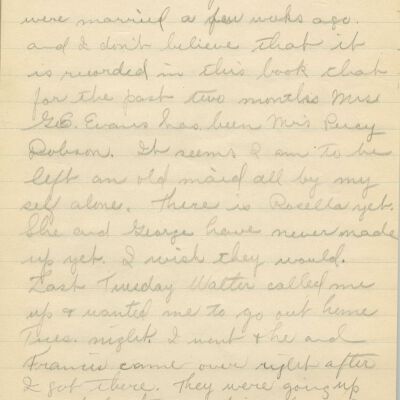 were married a few weeks ago.
and I don't believe that it
is recorded in this book that
for the past two months Mrs
G.E. Evans has been Mrs Percy
Robson. It seems I am to be
left an old maid all by my
self alone. There is Rosella yet.
She and George have never made
up yet. I wish they would.
Last Tuesday Walter called me
up & wanted me to go out home
Tues. night. I went & he and
Francis came over right after
I got there. They were going up